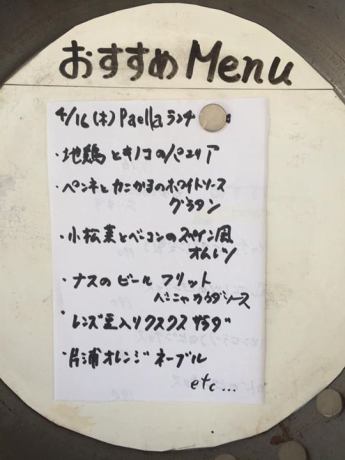 おすすめ Menu
4/16 (木) Paella ランチ
・地鶏とキノコのパエリア
・ペンネとカニかまのホワイトソース
グラタン
・小松菜とベーコンのスペイン風
オムレツ
・ナスのビール フリット
ソース
・レンズ豆入りクスクス サラダ
・片浦オレンジ ネーブル
etc...